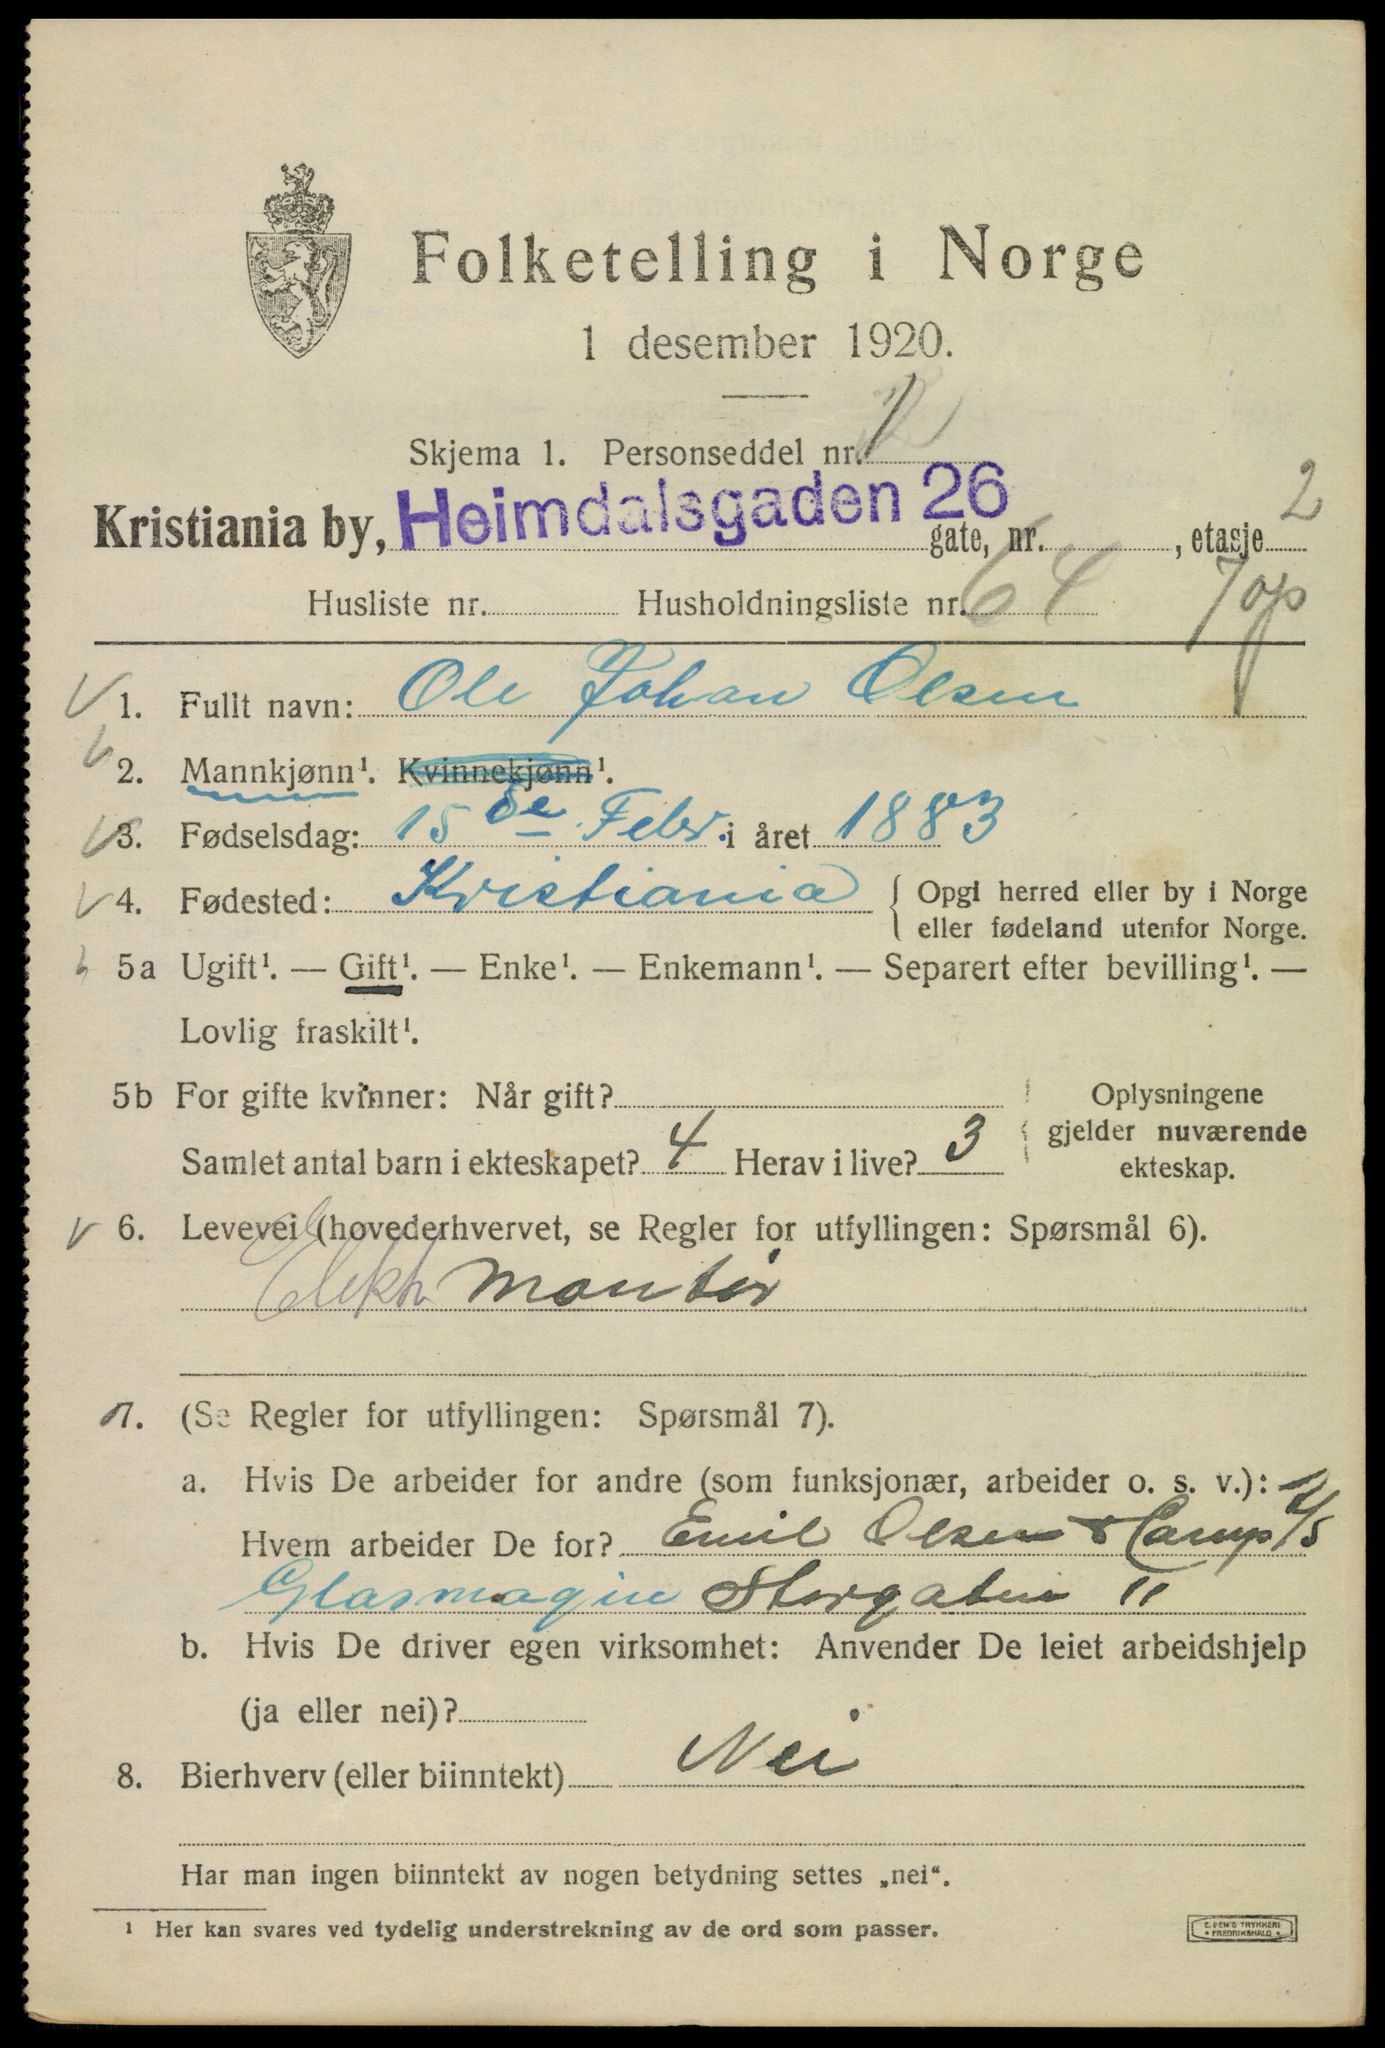 Folketelling i Norge
1 desember 1920.
Skjema 1. Personseddel nr. 1
Kristiania by, Heimdalsgaden 26 gate, nr. , etasje 2
Husliste nr. Husholdningsliste nr. 64
1. Fullt navn: Ole Johan Olsen
2. Mannkjønn¹. Kvinnekjønn¹.
3. Fødselsdag: 15 de Febr. i året 1883
4. Fødested: Kristiania { Opgi herred eller by i Norge
eller fødeland utenfor Norge.
5a Ugift¹. — Gift¹. — Enke¹. — Enkemann¹. — Separert efter bevilling¹. —
Lovlig fraskilt¹.
5b For gifte kvinner: Når gift? Oplysningene
gjelder nuværende
Samlet antal barn i ekteskapet? 4 Herav i live? 3
ekteskap.
6. Levevei (hovederhvervet, se Regler for utfyllingen: Spørsmål 6).
Elektr. Montør
7. (Se Regler for utfyllingen: Spørsmål 7).
a. Hvis De arbeider for andre (som funksjonær, arbeider o. s. v.):
Hvem arbeider De for? Emil Olsen & Comp A/S
Glasmagin Storgaten 11
b. Hvis De driver egen virksomhet: Anvender De leiet arbeidshjelp
(ja eller nei)?
8. Bierhverv (eller biinntekt) Nei
Har man ingen biinntekt av nogen betydning settes „nei“.
¹ Her kan svares ved tydelig understrekning av de ord som passer.
E. SEM'S TRYKKERI
FREDRIKSHALD